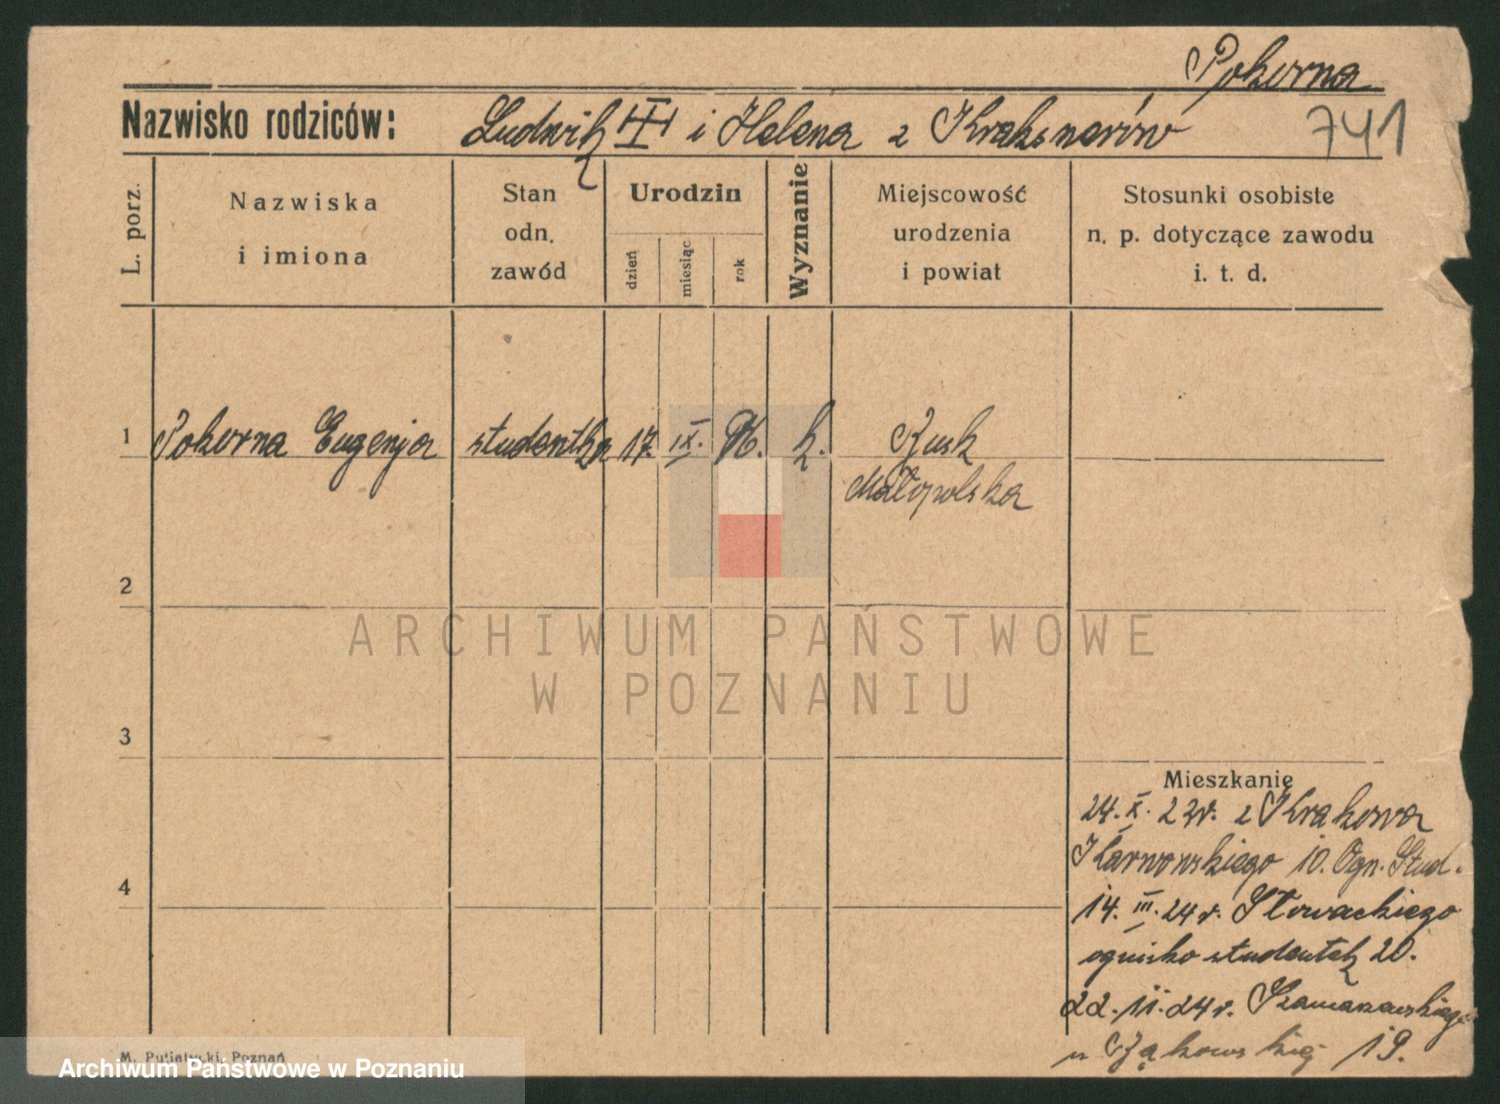 Pokorna
Nazwisko rodziców: Ludwik i Helena z 741
L. porz.
Nazwiska i imiona
Stan odn. zawód
Urodzin
dzień miesiąc rok
Wyznanie
Miejscowość urodzenia i powiat
Stosunki osobiste n. p. dotyczące zawodu i. t. d.
1 Pokorna Eugenja studentka 17. IX. k.
Małopolska
2
ARCHIWUM PAŃSTWOWE
W POZNANIU
3
Mieszkanie
24. X. 23r. z Krakowa
Karwowskiego 10. Ogn. Stud.
4
14. III. 24r. Słowackiego
ognisko studentek 20.
22. 11. 24r. Szamarzewskiego
19.
M. Putiatycki, Poznań
Archiwum Państwowe w Poznaniu